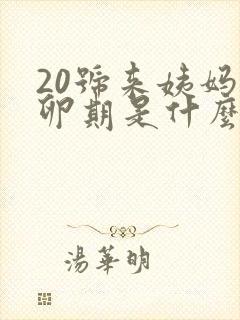 20號來姨媽
卵期是什麼
湯華明